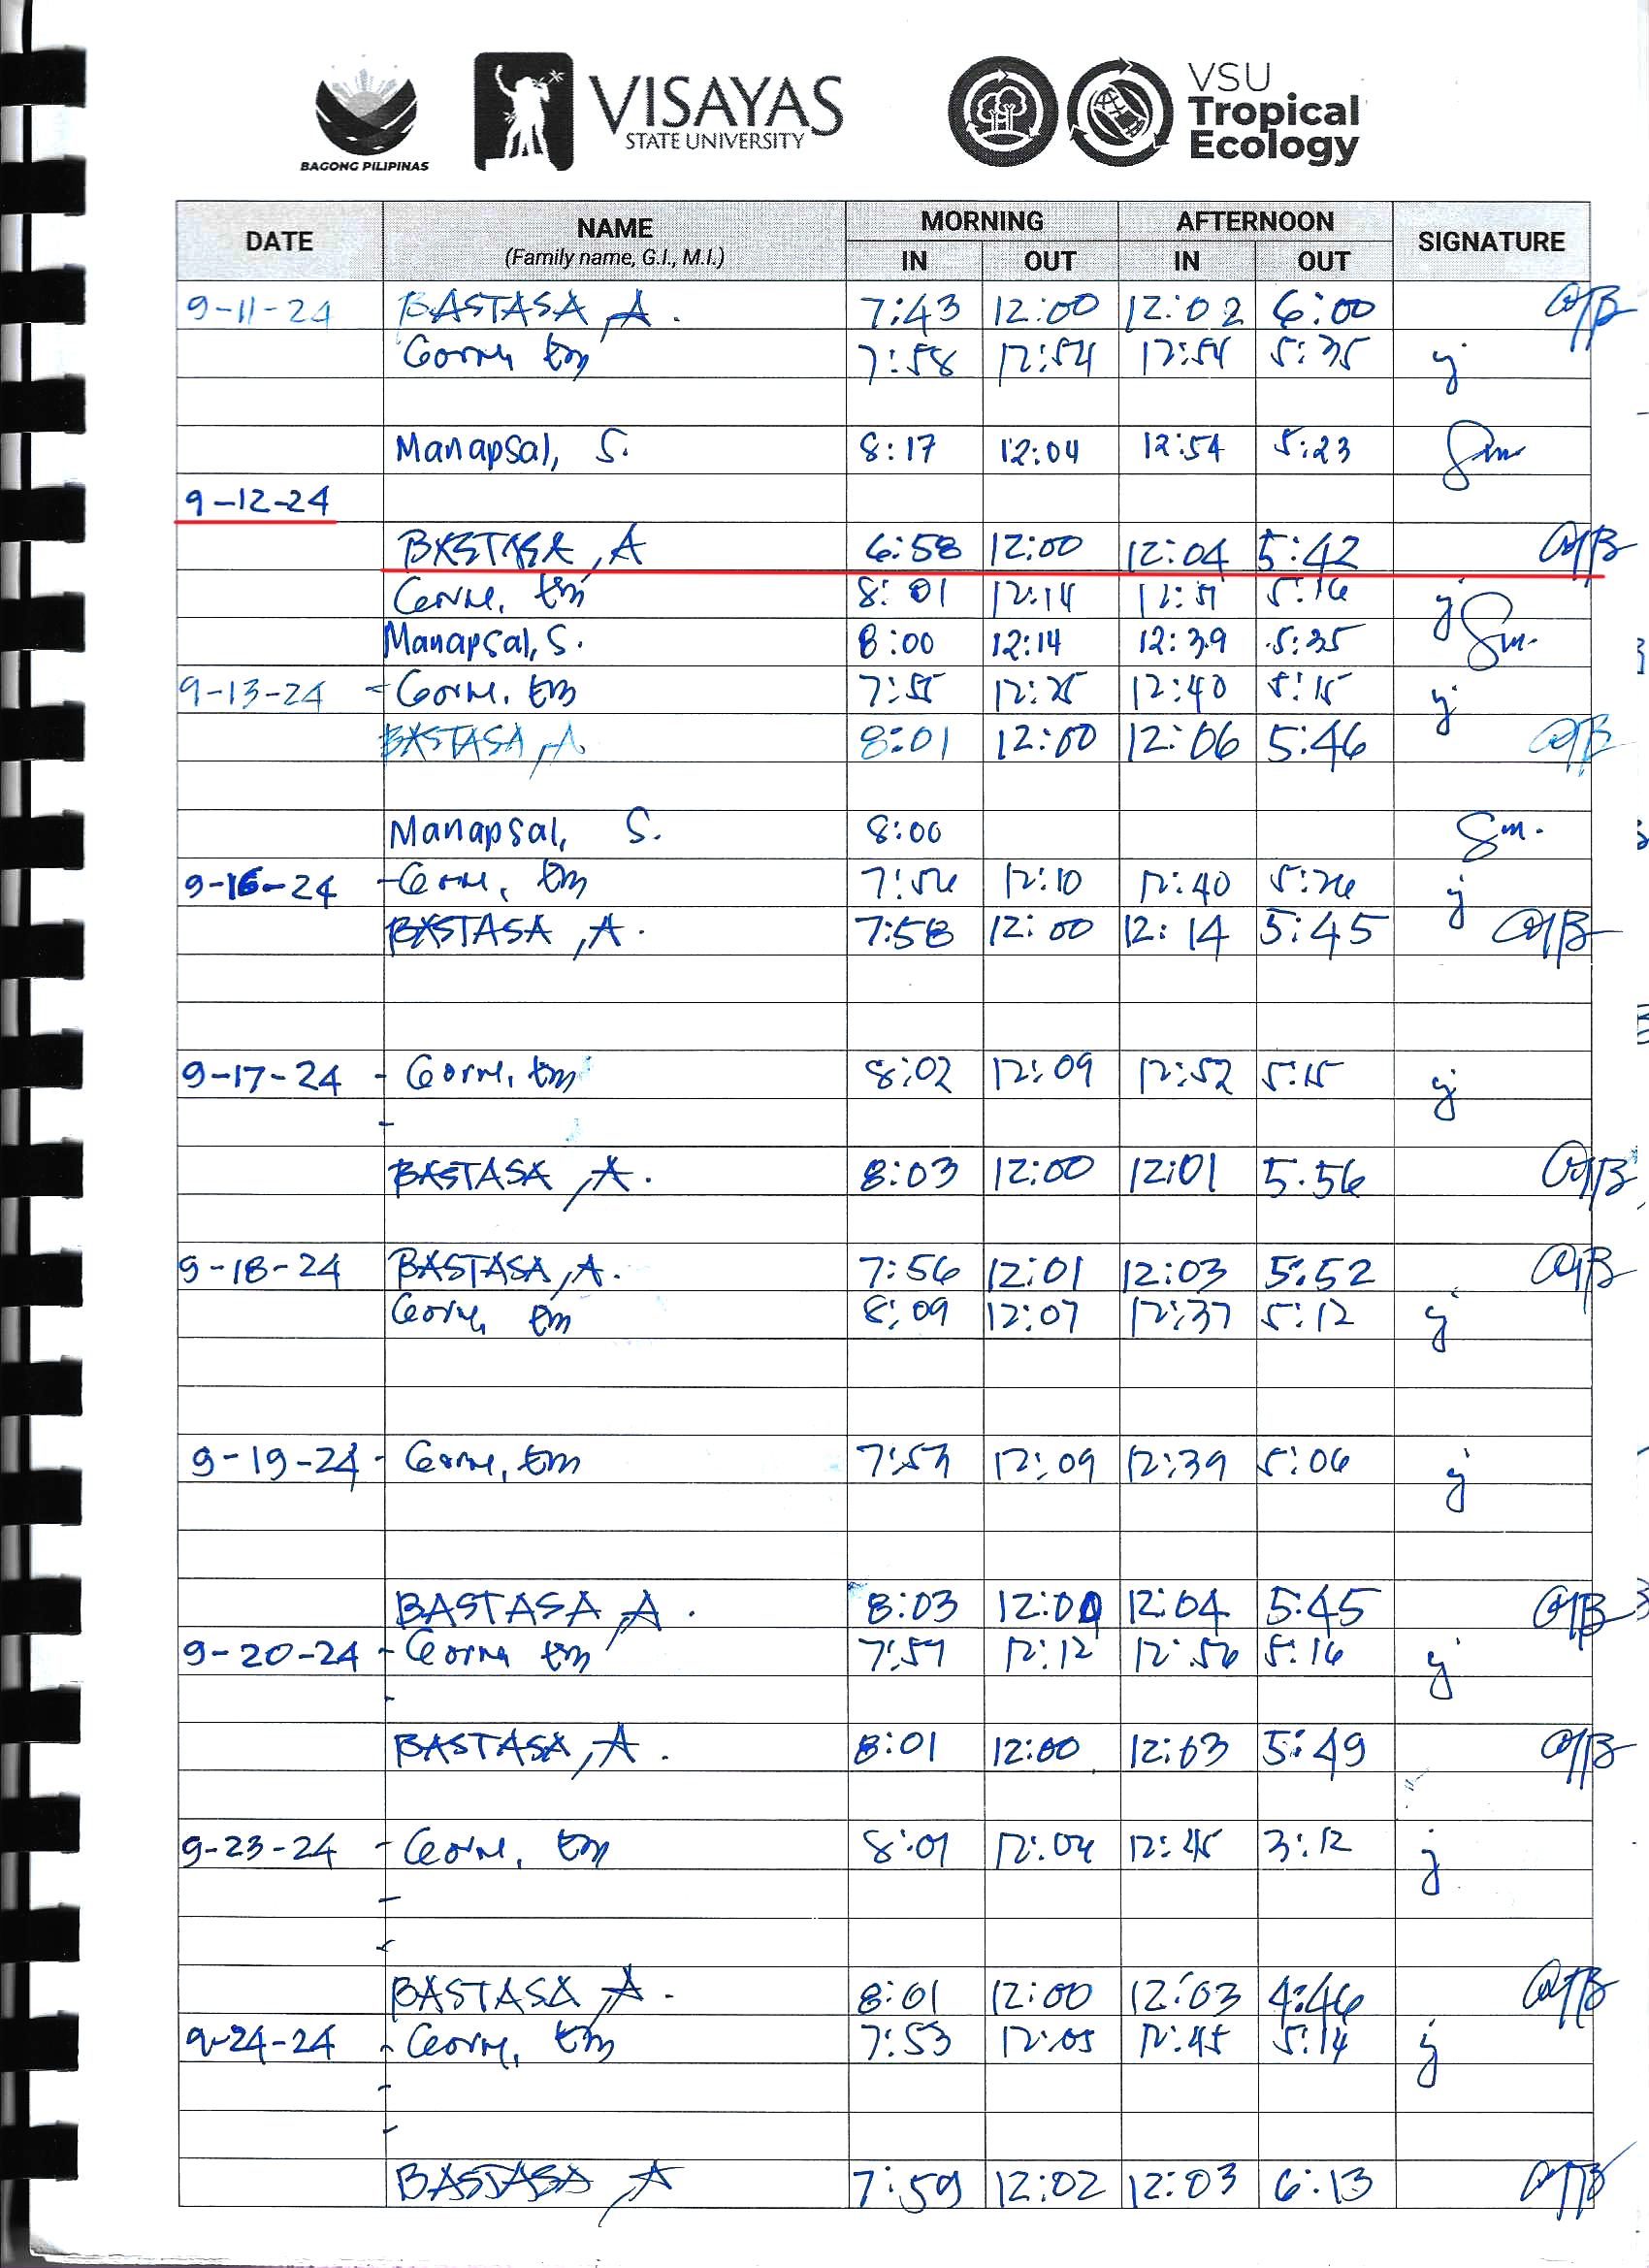 BAGONG PILIPINAS
VISAYAS
STATE UNIVERSITY
VSU
Tropical
Ecology
DATE NAME (Family name, G.I., M.I.) MORNING IN OUT AFTERNOON IN OUT SIGNATURE
9-11-24 BASTASA, A. 7:43 12:00 12:02 6:00
7:58 12:54 12:54 5:35
Manapsal, S. 8:17 12:04 12:54 5:23
9-12-24
BASTASA, A 6:58 12:00 12:04 5:42
8:01 12:14 5:16
Manapsal, S. 8:00 12:14 12:39 5:35
9-13-24 - Gorne, tm 7:55 12:25 12:40 5:15
BASTASA, A 8:01 12:00 12:06 5:46
Manapsal, S. 8:00
9-16-24 12:10 12:40 5:26
BASTASA, A. 7:58 12:00 12:14 5:45
9-17-24 - Gorne, tm 8:02 12:09 12:52 5:15
BASTASA, A. 8:03 12:00 12:01 5:56
9-18-24 BASTASA, A. 7:56 12:01 12:03 5:52
8:09 12:07 12:37 5:12
9-19-24 - Gorne, tm 7:53 12:09 12:39 5:06
BASTASA, A. 8:03 12:00 12:04 5:45
9-20-24 - 12:12 12:56 5:16
BASTASA, A. 8:01 12:00 12:03 5:49
9-23-24 - Gorne, tm 12:04 12:45 3:12
BASTASA, A. 8:01 12:00 12:03 4:46
9-24-24 - Gorne, tm 7:53 12:05 12:45 5:14
BASTASA, A 7:59 12:02 12:03 6:13